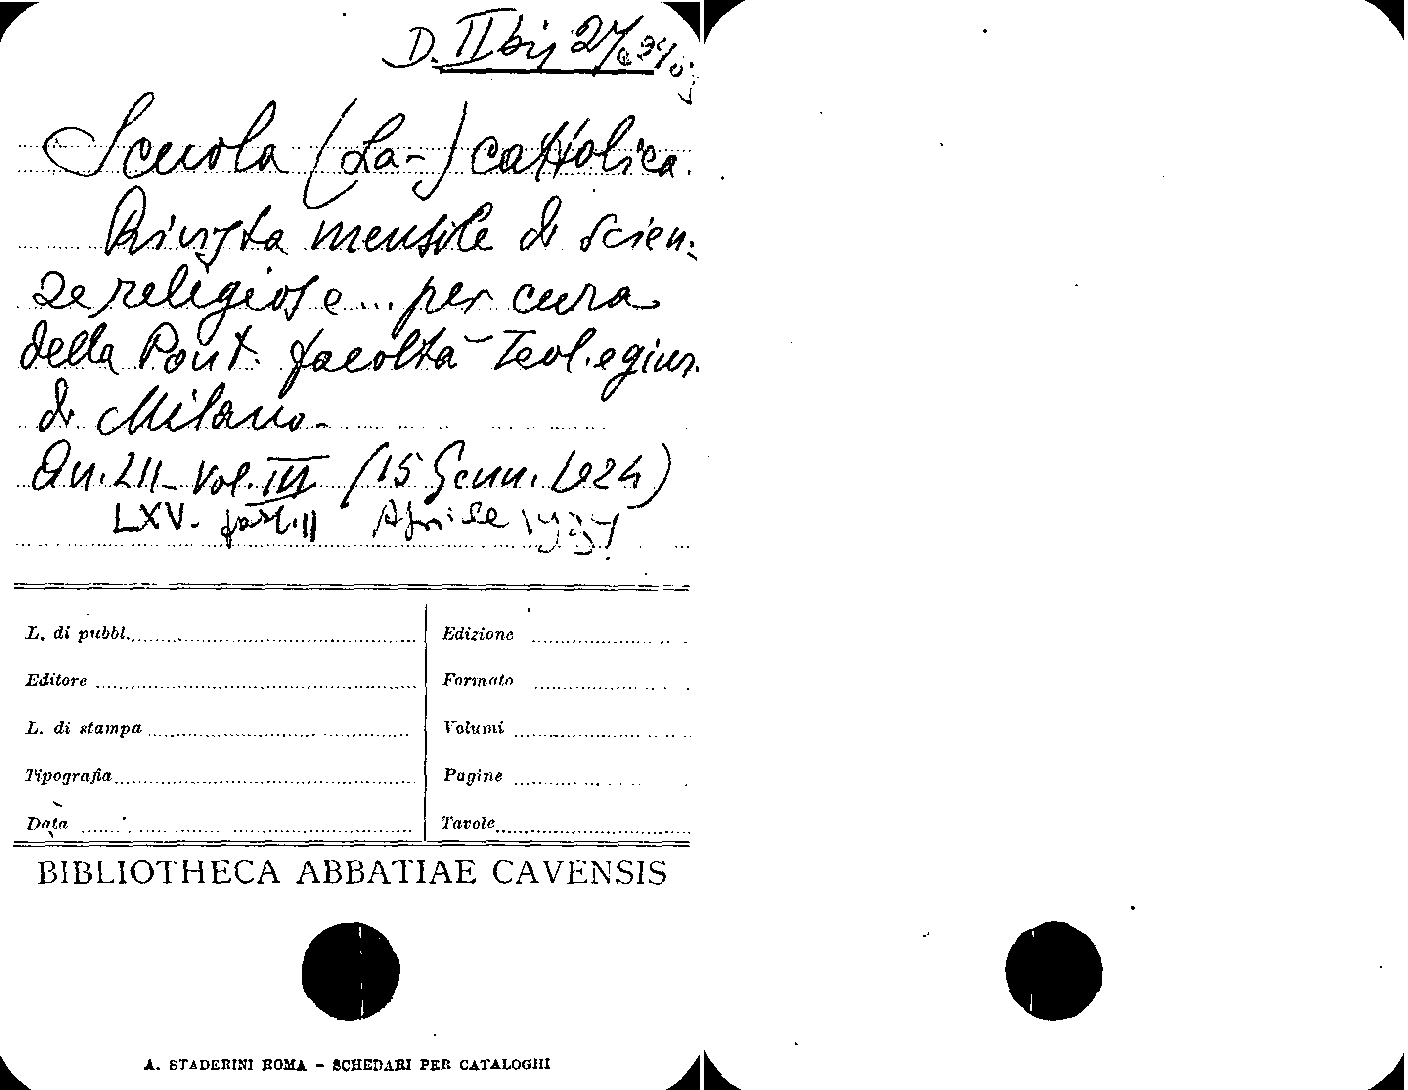 D. II bis 27
Scuola (La-) cattolica.
Rivista mensile di scien-
ze religiose... per cura
della Pont. facoltà Teol. e giur.
di Milano.
An. LII - Vol. III (15 Genn. 1924)
LXV - fasc. II Aprile 1937
L. di pubbl.
Edizione
Editore
Formato
L. di stampa
Volumi
Tipografia
Pagine
Data
Tavole
BIBLIOTHECA ABBATIAE CAVENSIS
A. STADERINI ROMA - SCHEDARI PER CATALOGHI